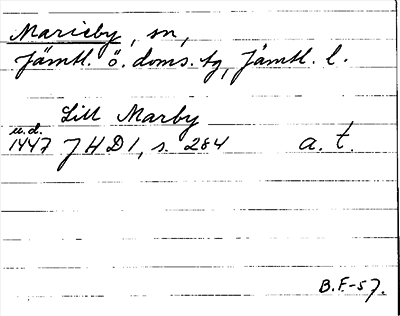 Marieby, sn,
Jämtl. ö. doms. tg, Jämtl. l.
Lill Marby
u.d.
1447 JHD1, s. 284 a. t.
B.F.-57.